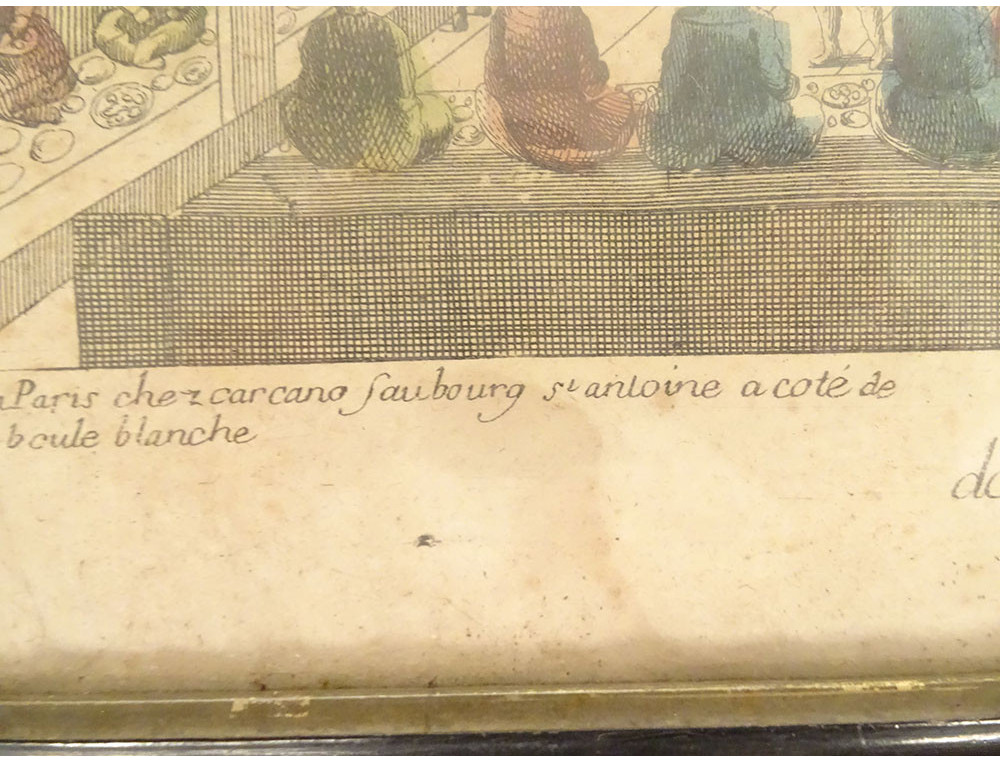 Paris chez carcano faubourg st antoine a coté de
boule blanche